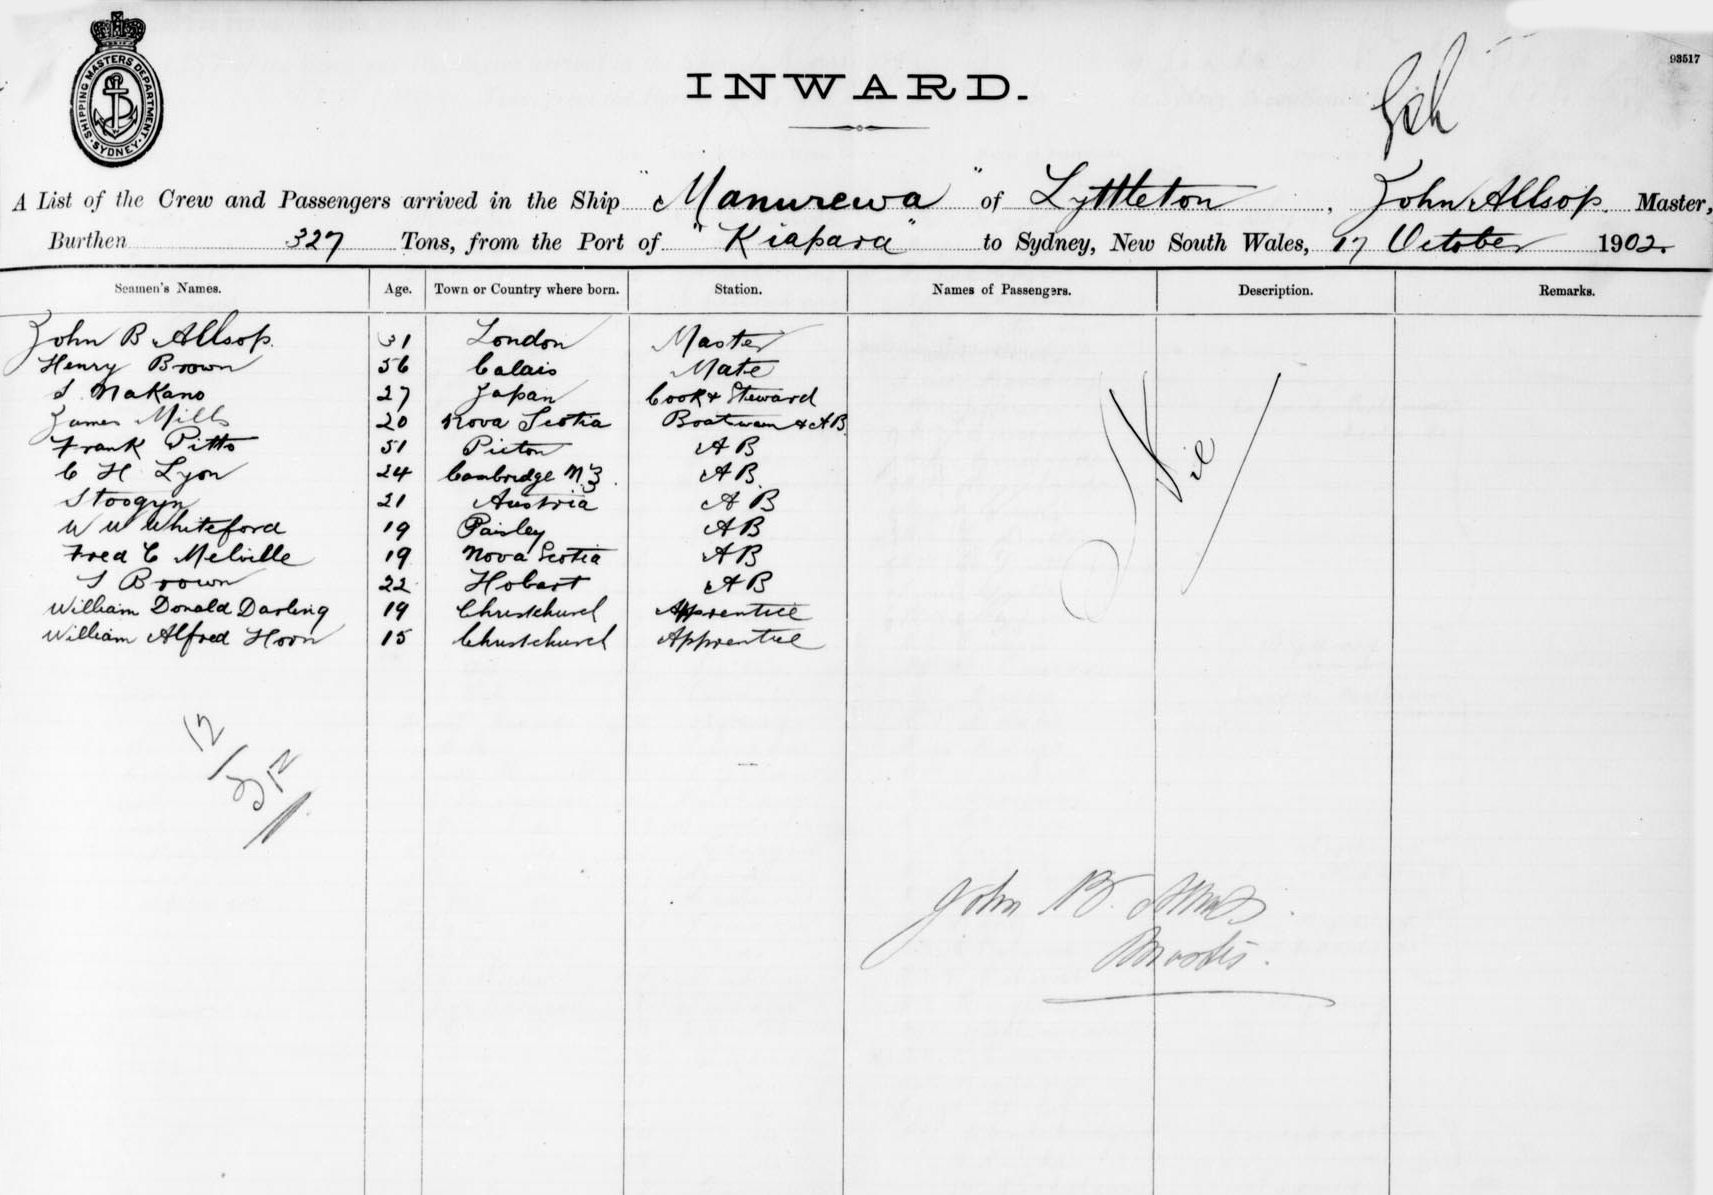 SHIPPING MASTERS DEPARTMENT · SYDNEY ·
93517
INWARD.
A List of the Crew and Passengers arrived in the Ship "Manurewa" of Lyttleton, John Allsop. Master,
Burthen 327 Tons, from the Port of "Kiapara" to Sydney, New South Wales, 17 October 1902.
Seamen's Names. Age. Town or Country where born. Station. Names of Passengers. Description. Remarks.
John B Allsop. 31 London Master
Henry Brown 56 Calais Mate
S. Nakano 27 Japan Cook & Steward
James Mills 20 Nova Scotia Boatswain & AB
Frank Pitts 51 Picton AB
C H Lyon 24 Cambridge NZ. AB.
Stoogyn 21 Austria AB
W W Whiteford 19 Paisley AB
Fred C Melville 19 Nova Scotia AB
S Brown 22 Hobart AB
William Donald Darling 19 Christchurch Apprentice
William Alfred Horn 15 Christchurch Apprentice
Nil
12
John B. Allsop.
Master.